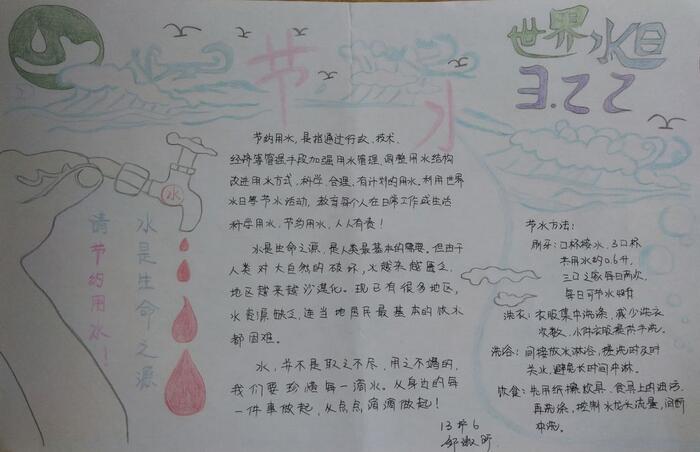 世界水日
3.22
节水
节约用水,是指通过行政、技术、
经济等管理手段加强用水管理,调整用水结构
改进用水方式,科学、合理、有计划的用水。利用世界
水日等节水活动,教育每个人在日常工作或生活
科学用水,节约用水,人人有责!
水是生命之源,是人类最基本的需要。但由于
人类对大自然的破坏,水越来越匮乏,
地区越来越沙漠化。现已有很多地区,
水资源缺乏,连当地居民最基本的饮水
都困难。
水,并不是取之不尽,用之不竭的,
我们要珍惜每一滴水。从身边的每
一件事做起,从点点滴滴做起!
13护6
水
水是生命之源
请节约用水!
节水方法:
刷牙:口杯接水、3口杯
共用水约0.6升,
三口之家每日两次,
每日可节水
洗衣:衣服集中洗涤,减少洗衣
次数,小件衣服提倡手洗。
洗浴:间接放水淋浴,搓洗时及时
关水,避免长时间冲淋。
饮食:先用纸擦炊具、食具上的油污,
再洗涤,控制水龙头流量,间断
冲洗。